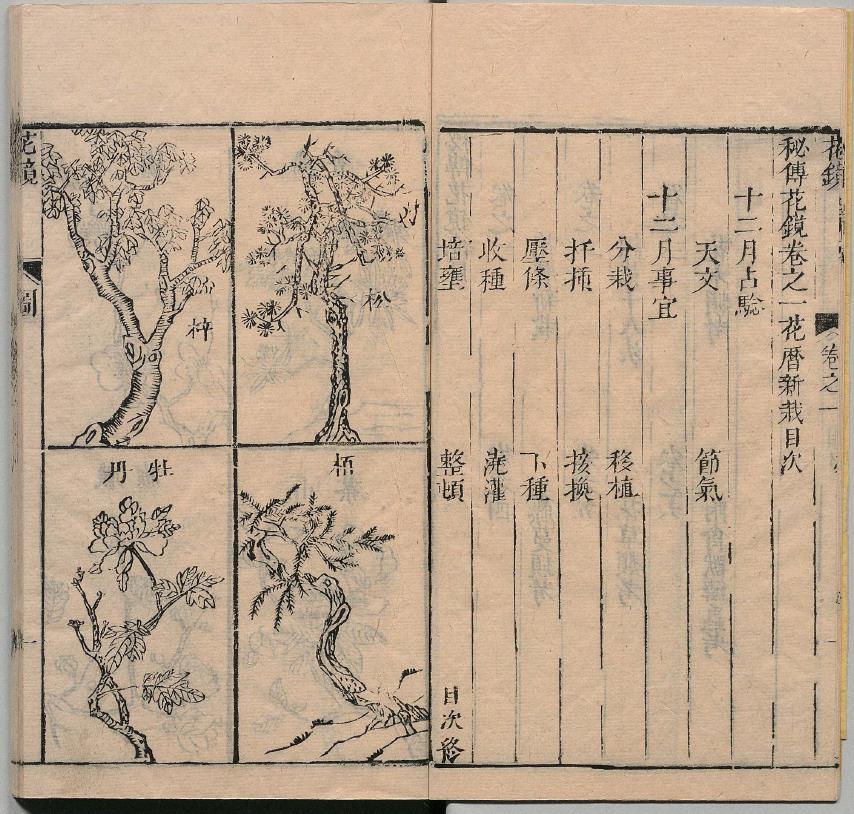 花鏡
卷之一
秘傳花鏡卷之一花曆新栽目次
十二月占驗
天文 節氣
十二月事宜
分栽 移植
扦插 接換
壓條 下種
收種 澆灌
培壅 整頓
目次終
松
栢
梓
牡丹
花鏡
圖
一